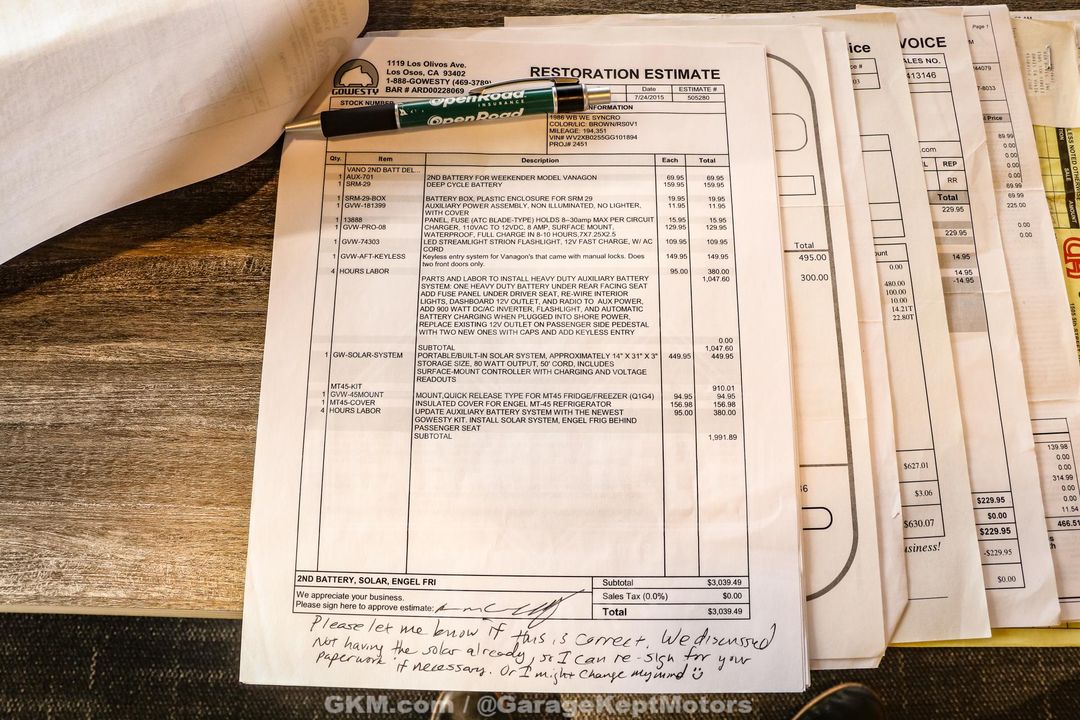 1119 Los Olivos Ave.
Los Osos, CA 93402
1-888-GOWESTY (469-3789)
BAR # ARD00228069
GOWESTY
RESTORATION ESTIMATE
Date ESTIMATE #
7/24/2015 505280
STOCK NUMBER
Open Road
INSURANCE
Open Road
1986 WB WE SYNCRO
COLOR/LIC: BROWN/RS0V1
MILEAGE: 194,351
VIN# WV2XB0255GG101894
PROJ# 2451
Qty. Item Description Each Total
VANO 2ND BATT DEL...
1 AUX-701 2ND BATTERY FOR WEEKENDER MODEL VANAGON 69.95 69.95
1 SRM-29 DEEP CYCLE BATTERY 159.95 159.95
1 SRM-29-BOX BATTERY BOX, PLASTIC ENCLOSURE FOR SRM 29 19.95 19.95
1 GVW-181399 AUXILIARY POWER ASSEMBLY, NON ILLUMINATED, NO LIGHTER, 11.95 11.95
WITH COVER
1 13888 PANEL, FUSE (ATC BLADE-TYPE) HOLDS 8--30amp MAX PER CIRCUIT 15.95 15.95
1 GVW-PRO-08 CHARGER, 110VAC TO 12VDC, 8 AMP, SURFACE MOUNT, 129.95 129.95
WATERPROOF, FULL CHARGE IN 8-10 HOURS,7X7.25X2.5
1 GVW-74303 LED STREAMLIGHT STRION FLASHLIGHT, 12V FAST CHARGE, W/ AC 109.95 109.95
CORD
1 GVW-AFT-KEYLESS Keyless entry system for Vanagon's that came with manual locks. Does 149.95 149.95
two front doors only.
4 HOURS LABOR 95.00 380.00
PARTS AND LABOR TO INSTALL HEAVY DUTY AUXILIARY BATTERY 1,047.60
SYSTEM: ONE HEAVY DUTY BATTERY UNDER REAR FACING SEAT
ADD FUSE PANEL UNDER DRIVER SEAT, RE-WIRE INTERIOR
LIGHTS, DASHBOARD 12V OUTLET, AND RADIO TO AUX POWER,
ADD 900 WATT DC/AC INVERTER, FLASHLIGHT, AND AUTOMATIC
BATTERY CHARGING WHEN PLUGGED INTO SHORE POWER,
REPLACE EXISTING 12V OUTLET ON PASSENGER SIDE PEDESTAL
WITH TWO NEW ONES WITH CAPS AND ADD KEYLESS ENTRY
0.00
SUBTOTAL 1,047.60
1 GW-SOLAR-SYSTEM PORTABLE/BUILT-IN SOLAR SYSTEM, APPROXIMATELY 14" X 31" X 3" 449.95 449.95
STORAGE SIZE, 80 WATT OUTPUT, 50' CORD, INCLUDES
SURFACE-MOUNT CONTROLLER WITH CHARGING AND VOLTAGE
READOUTS
MT45-KIT 910.01
1 GVW-45MOUNT MOUNT,QUICK RELEASE TYPE FOR MT45 FRIDGE/FREEZER (Q1G4) 94.95 94.95
1 MT45-COVER INSULATED COVER FOR ENGEL MT-45 REFRIGERATOR 156.98 156.98
4 HOURS LABOR UPDATE AUXILIARY BATTERY SYSTEM WITH THE NEWEST 95.00 380.00
GOWESTY KIT. INSTALL SOLAR SYSTEM, ENGEL FRIG BEHIND
PASSENGER SEAT
SUBTOTAL 1,991.89
2ND BATTERY, SOLAR, ENGEL FRI
We appreciate your business.
Please sign here to approve estimate:
Subtotal $3,039.49
Sales Tax (0.0%) $0.00
Total $3,039.49
Please let me know if this is correct. We discussed
Not having the solar already, so I can re-sign for your
paperwork if necessary. Or I might change my mind
GKM.com / @GarageKeptMotors
Total
495.00
300.00
ALES NO.
413146
.com
REP
RR
Total
229.95
229.95
14.95
14.95
-14.95
0.00
480.00
100.00
10.00
14.21T
22.80T
$627.01
$3.06
$630.07
$229.95
$0.00
$229.95
-$229.95
$0.00
Page 1
Price
89.99
0.00
0.00
0.00
69.99
225.00
0.00
0.00
139.98
0.00
0.00
314.99
0.00
0.00
11.54
466.51